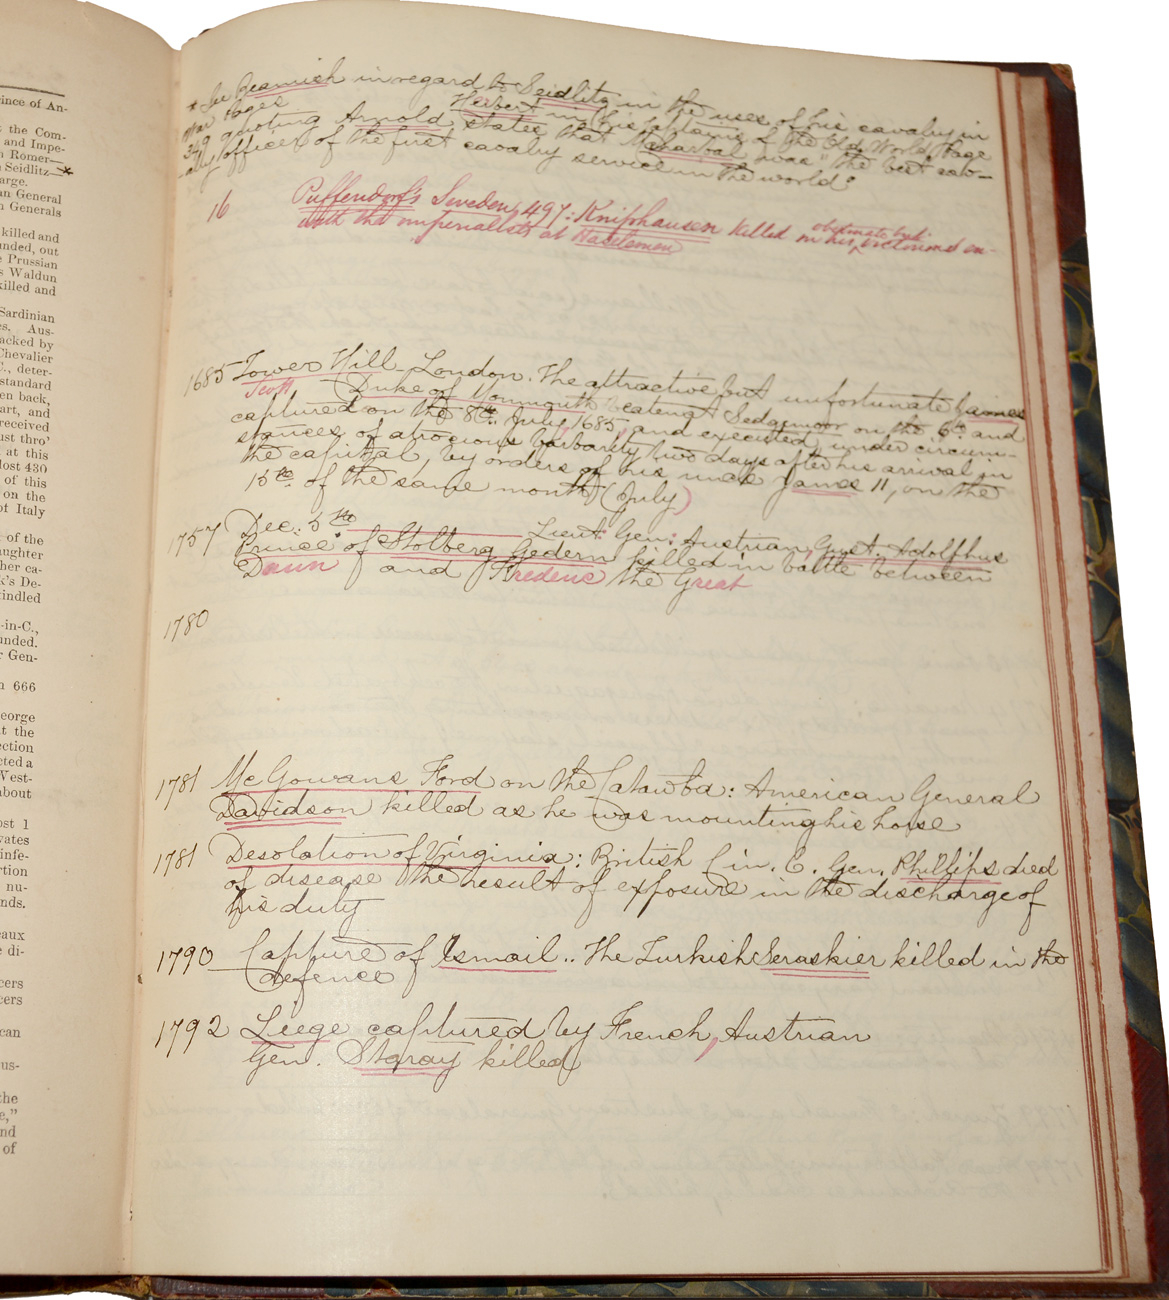 ince of An-
t the Com-
and Impe-
n Römer—
Seidlitz—*
arge.
an General
n Generals
killed and
nded, out
e Prussian
s Waldun
killed and
Sardinian
es. Aus-
acked by
Chevalier
C., deter-
standard
en back,
art, and
received
ust thro'
at this
lost 430
of this
on the
of Italy
of the
aughter
her ca-
k's De-
indled
-in-C.,
unded.
Gen-
n 666
eorge
t the
ection
cted a
West-
about
ost 1
vates
infe-
rtion
nu-
nds.
eaux
e di-
cers
cers
can
us-
the
e,"
nd
of
* See Beamish in regard to Seidlitz in the uses of his cavalry in
war Pages Herbert in his "
349 quoting Arnold states that Maharbal was "the best cav-
-alry officer of the first cavalry service in the world"
16 Puffendorf's Sweden, 497: Kniphausen killed in his obstinate but victorious en-
with the imperialists at Haselemen
1685 Tower Hill - London. The attractive but unfortunate James
Scott Duke of Monmouth beaten at Sedgmoor on the 6th and
captured on the 8th July, 1685, and executed, under circum-
stances of atrocious barbarity two days after his arrival in
the capital, by orders of his uncle James II, on the
15th of the same month (July)
1757 Dec: 5th Lieut: Gen: Austrian, Gust. Adolfhus
Prince of Stolberg Gedern killed in battle between
Daun and Frederic the Great
1780
1781 McGowans Ford on the Catawba: American General
Davidson killed as he was mounting his horse
1781 Desolation of Virginia: British C in. C. Gen. Phillips died
of disease the result of exposure in the discharge of
his duty
1790 Capture of Ismail.. The Turkish Seraskier killed in the
defence
1792 Liege captured by French, Austrian
Gen. Staray killed